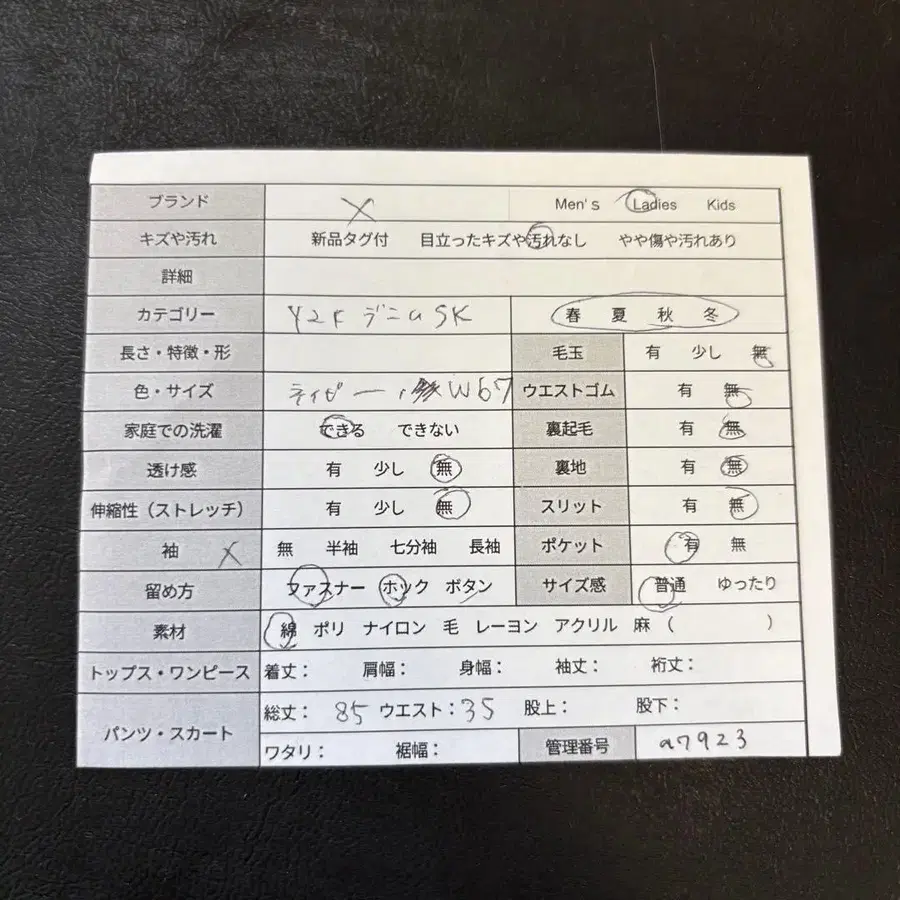 ブランド X Men's Ladies Kids
キズや汚れ 新品タグ付 目立ったキズや汚れなし やや傷や汚れあり
詳細
カテゴリー Y2K デニムSK 春 夏 秋 冬
長さ・特徴・形 毛玉 有 少し 無
色・サイズ ネイビー W67 ウエストゴム 有 無
家庭での洗濯 できる できない 裏起毛 有 無
透け感 有 少し 無 裏地 有 無
伸縮性（ストレッチ） 有 少し 無 スリット 有 無
袖 X 無 半袖 七分袖 長袖 ポケット 有 無
留め方 ファスナー ホック ボタン サイズ感 普通 ゆったり
素材 綿 ポリ ナイロン 毛 レーヨン アクリル 麻 （ ）
トップス・ワンピース 着丈： 肩幅： 身幅： 袖丈： 裄丈：
パンツ・スカート 総丈： 85 ウエスト：35 股上： 股下：
ワタリ： 裾幅： 管理番号 a7923